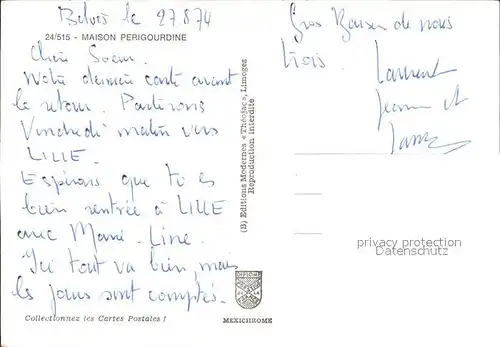 Belvès le 27 8 74
24/515 - MAISON PERIGOURDINE
Chère Soeur.
Notre dernière carte avant
le retour. Partirons
Vendredi matin vers
LILLE.
Espérons que tu es
bien rentrée à LILLE
avec Marie-Line.
Ici tout va bien, mais
les jours sont comptés.
Collectionnez les Cartes Postales !
(B) Editions Modernes « Théojac », Limoges
Reproduction interdite
DIPLOME
MEXICHROME
Gros Baiser de nous
trois.
Laurent
Jeanne et
privacy protection
Datenschutz